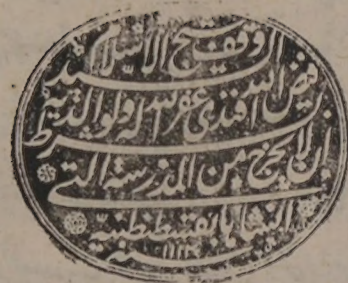 وقف شيخ الاسلام السيد
فيض الله افندى غفر الله له ولوالديه بشرط
ان لا يخرج من المدرسة التى
انشاها بقسطنطينية
سنه